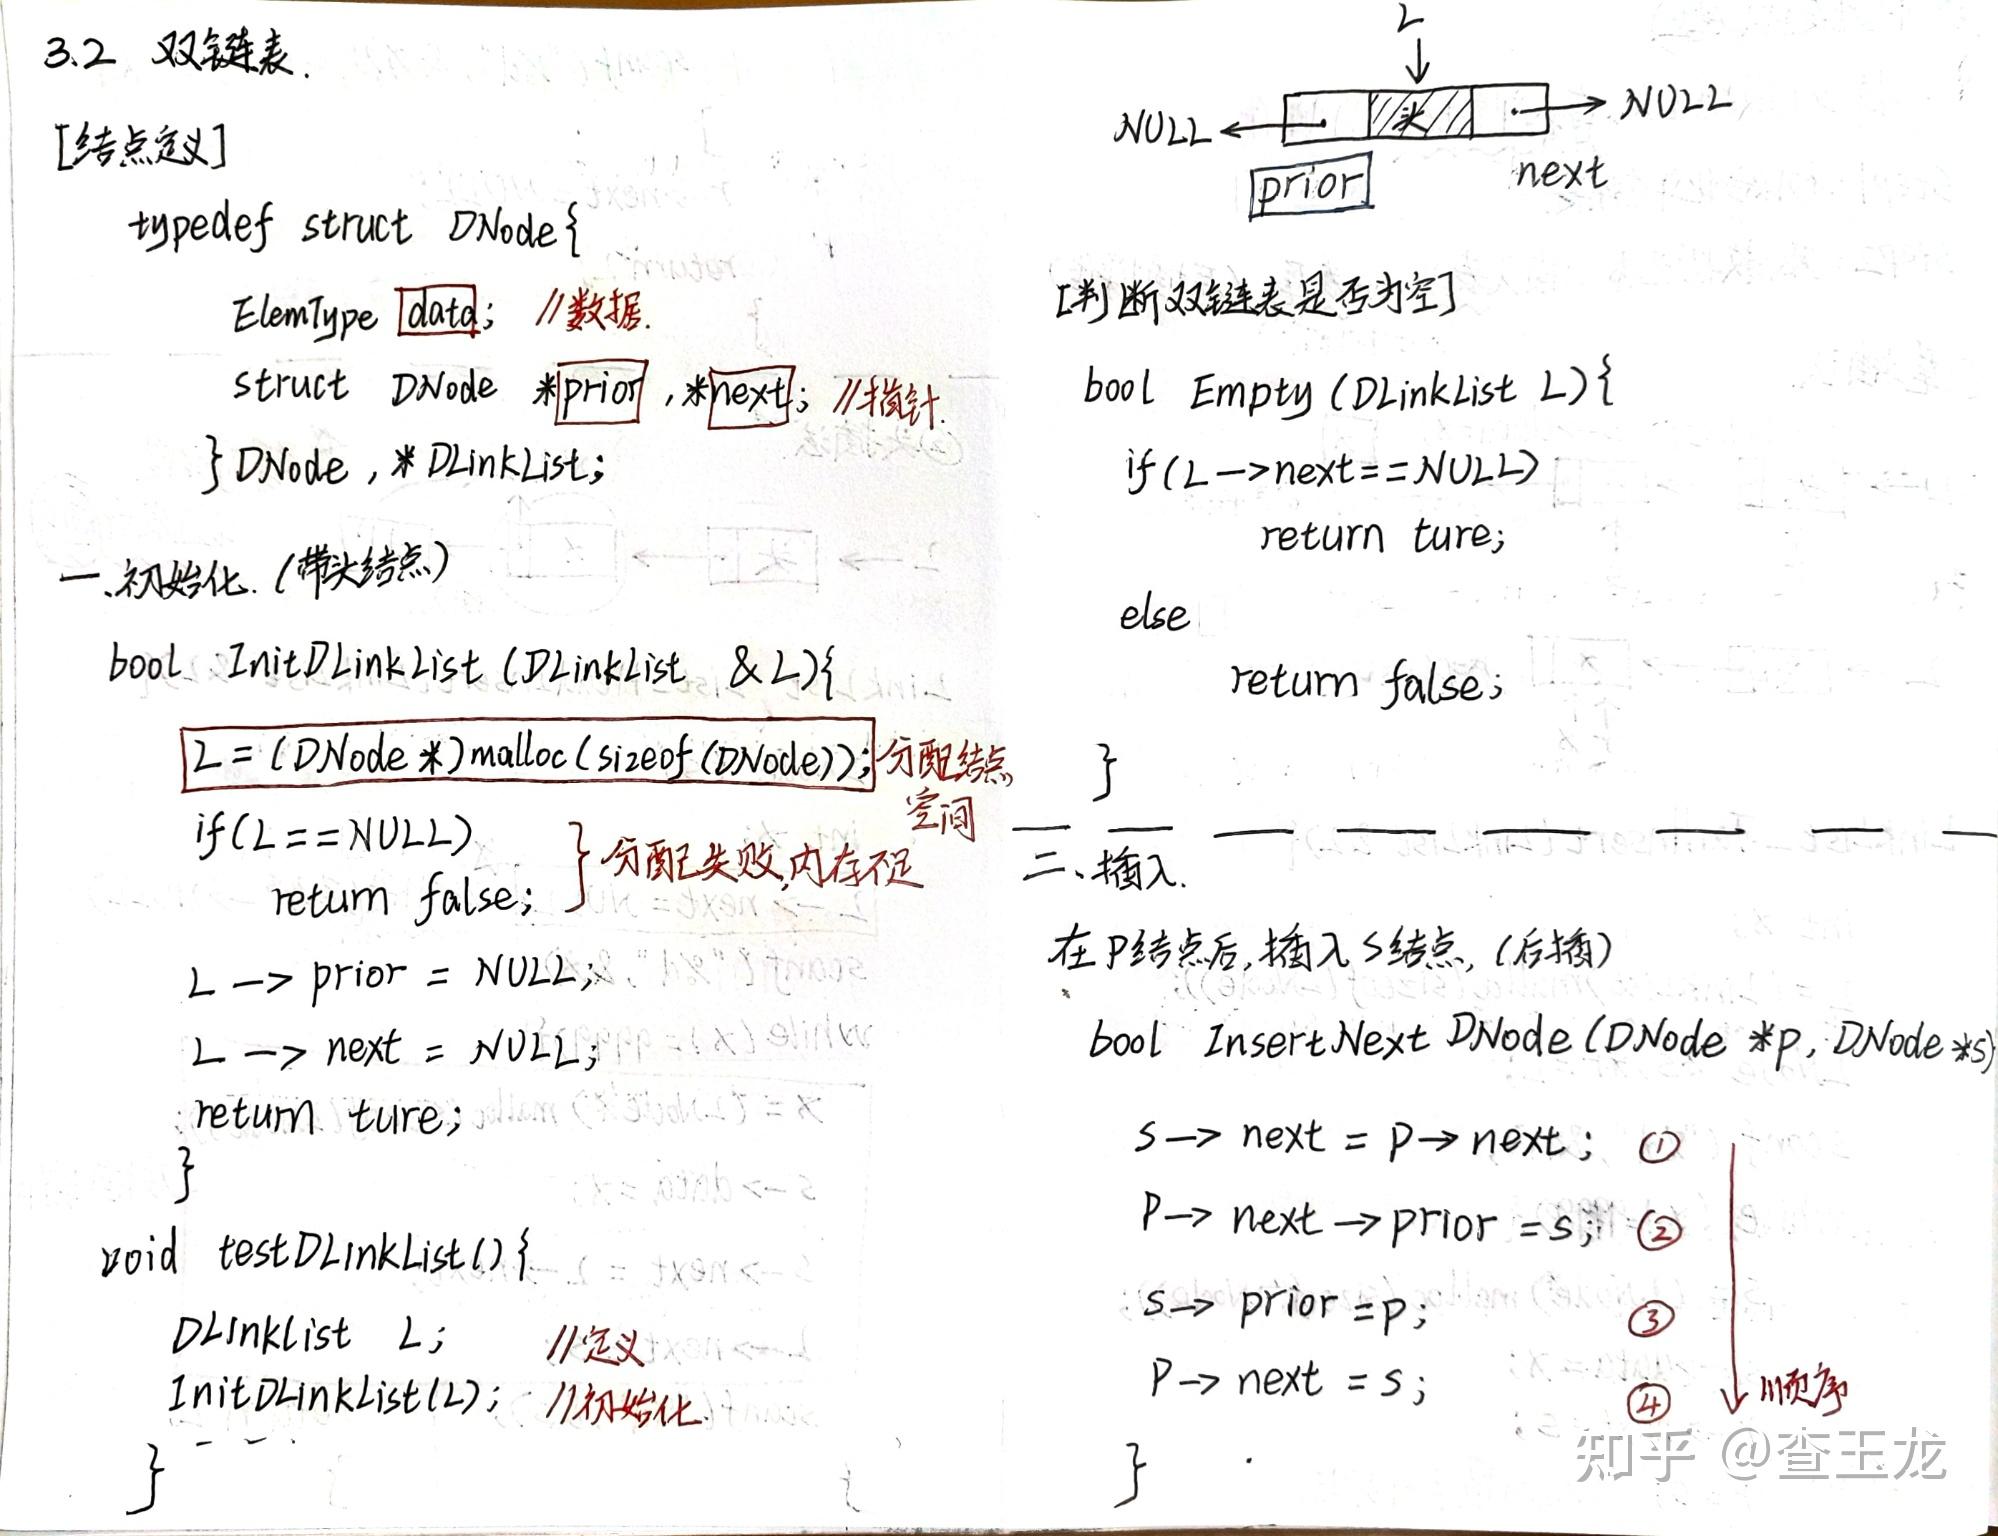 3.2 双链表.
[结点定义]
typedef struct DNode{
ElemType data; //数据.
struct DNode *prior, *next; //指针.
}DNode, *DLinkList;
一、初始化.(带头结点)
bool InitDLinkList (DLinkList &L){
L=(DNode *)malloc(sizeof(DNode)); 分配结点
空间
if(L==NULL)
return false;
} 分配失败,内存不足
L->prior = NULL;
L->next = NULL;
return ture;
}
void testDLinkList(){
DLinkList L; //定义
InitDLinkList(L); //初始化.
}
L
NULL 头 NULL
prior next
[判断双链表是否为空]
bool Empty(DLinkList L){
if(L->next==NULL)
return ture;
else
return false;
}
二、插入.
在P结点后,插入S结点,(后插)
bool InsertNext DNode(DNode *p, DNode *s)
s->next = p->next; ①
p->next->prior = s; ②
s->prior = p; ③
p->next = s; ④
顺序
}
知乎 @查玉龙